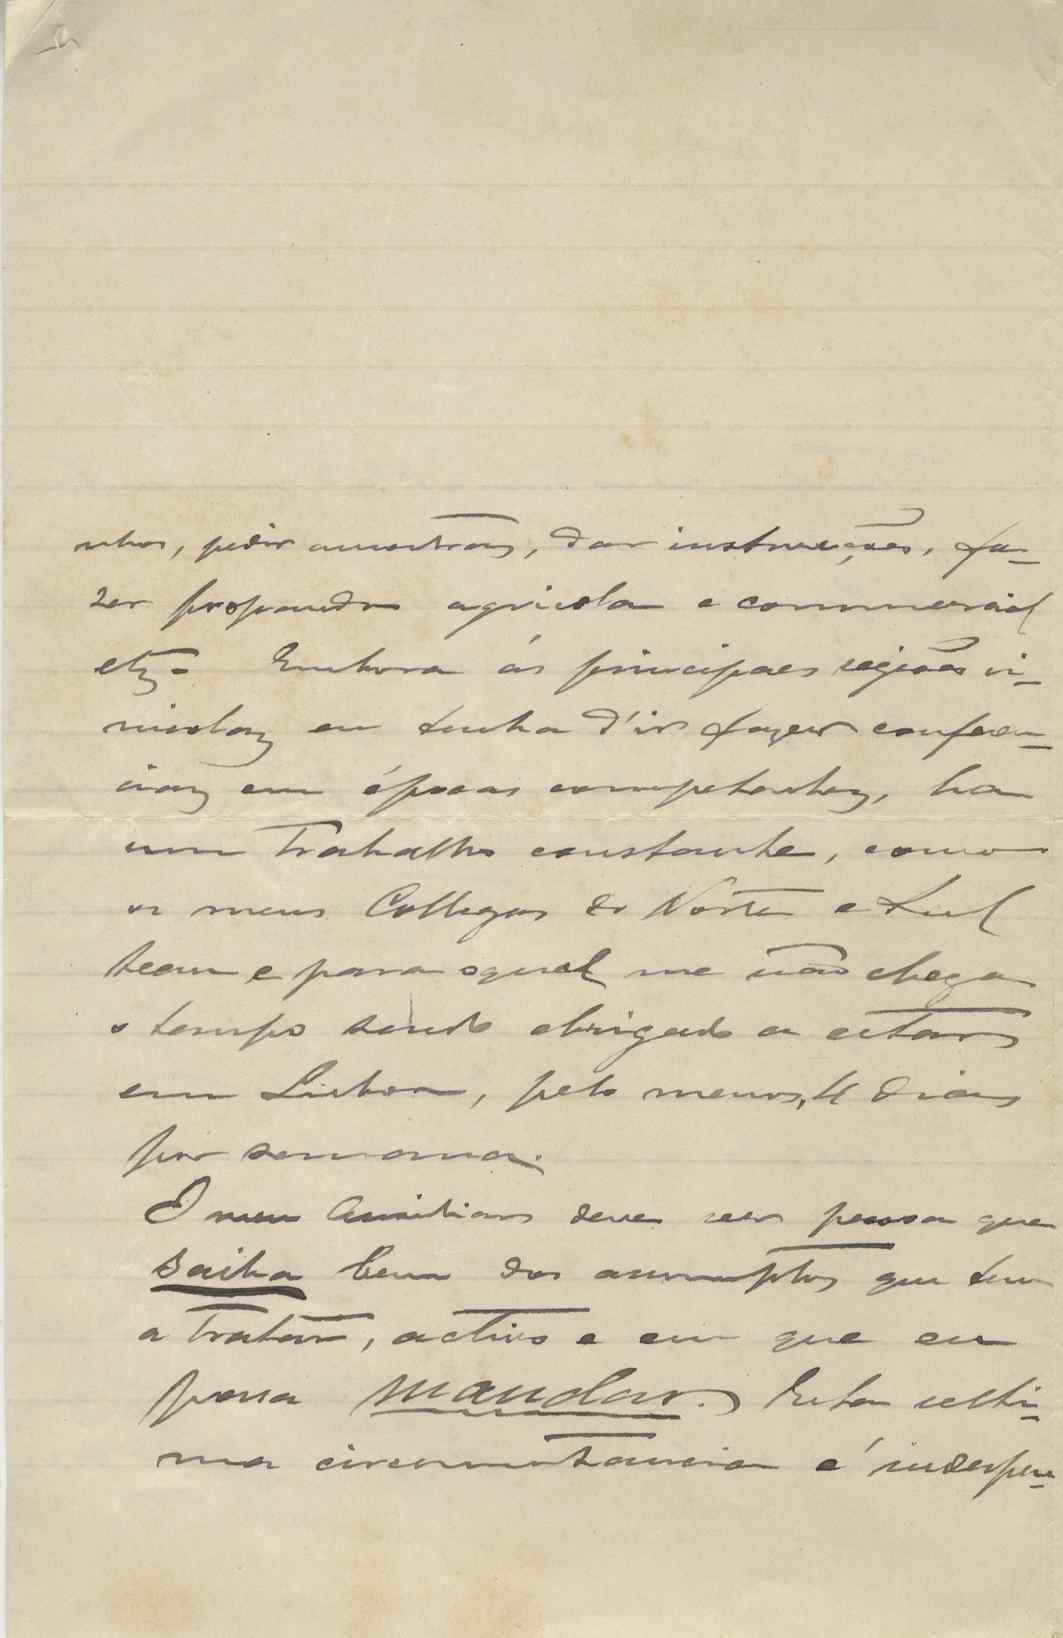 nhos, pedir amostras, dar instrucções, fa-
zer propaganda agricola e commercial
etc. Embora ás principaes regiões vi-
nicolas eu tenha d'ir fazer conferen-
cias em épocas competentes, ha
um trabalho constante, como
os meus Collegas do Norte e Sul
teem e para o qual me não chega
o tempo sendo obrigado a estar
em Lisboa, pelo menos, 4 dias
por semana.
O meu auxiliar deve ser pessoa que
saiba bem dos assumptos que tem
a tratar, activo e em que eu
possa mandar. Esta ulti-
ma circumstancia é indespen-